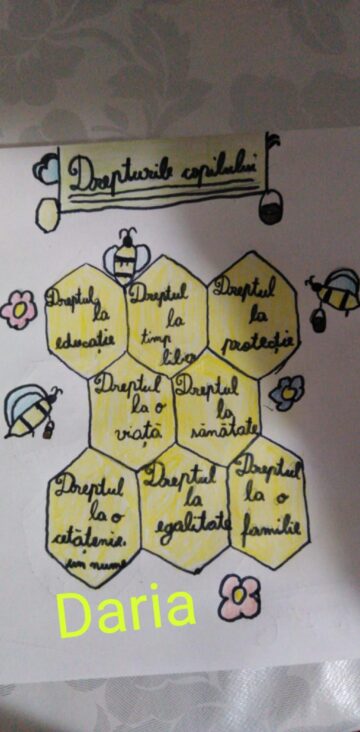 Drepturile copilului
Dreptul
la
educație
Dreptul
la
timp
liber
Dreptul
la
protecție
Dreptul
la o
viață
Dreptul
la
sănătate
Dreptul
la o
cetățenie,
un nume
Dreptul
la
egalitate
Dreptul
la o
familie
Daria